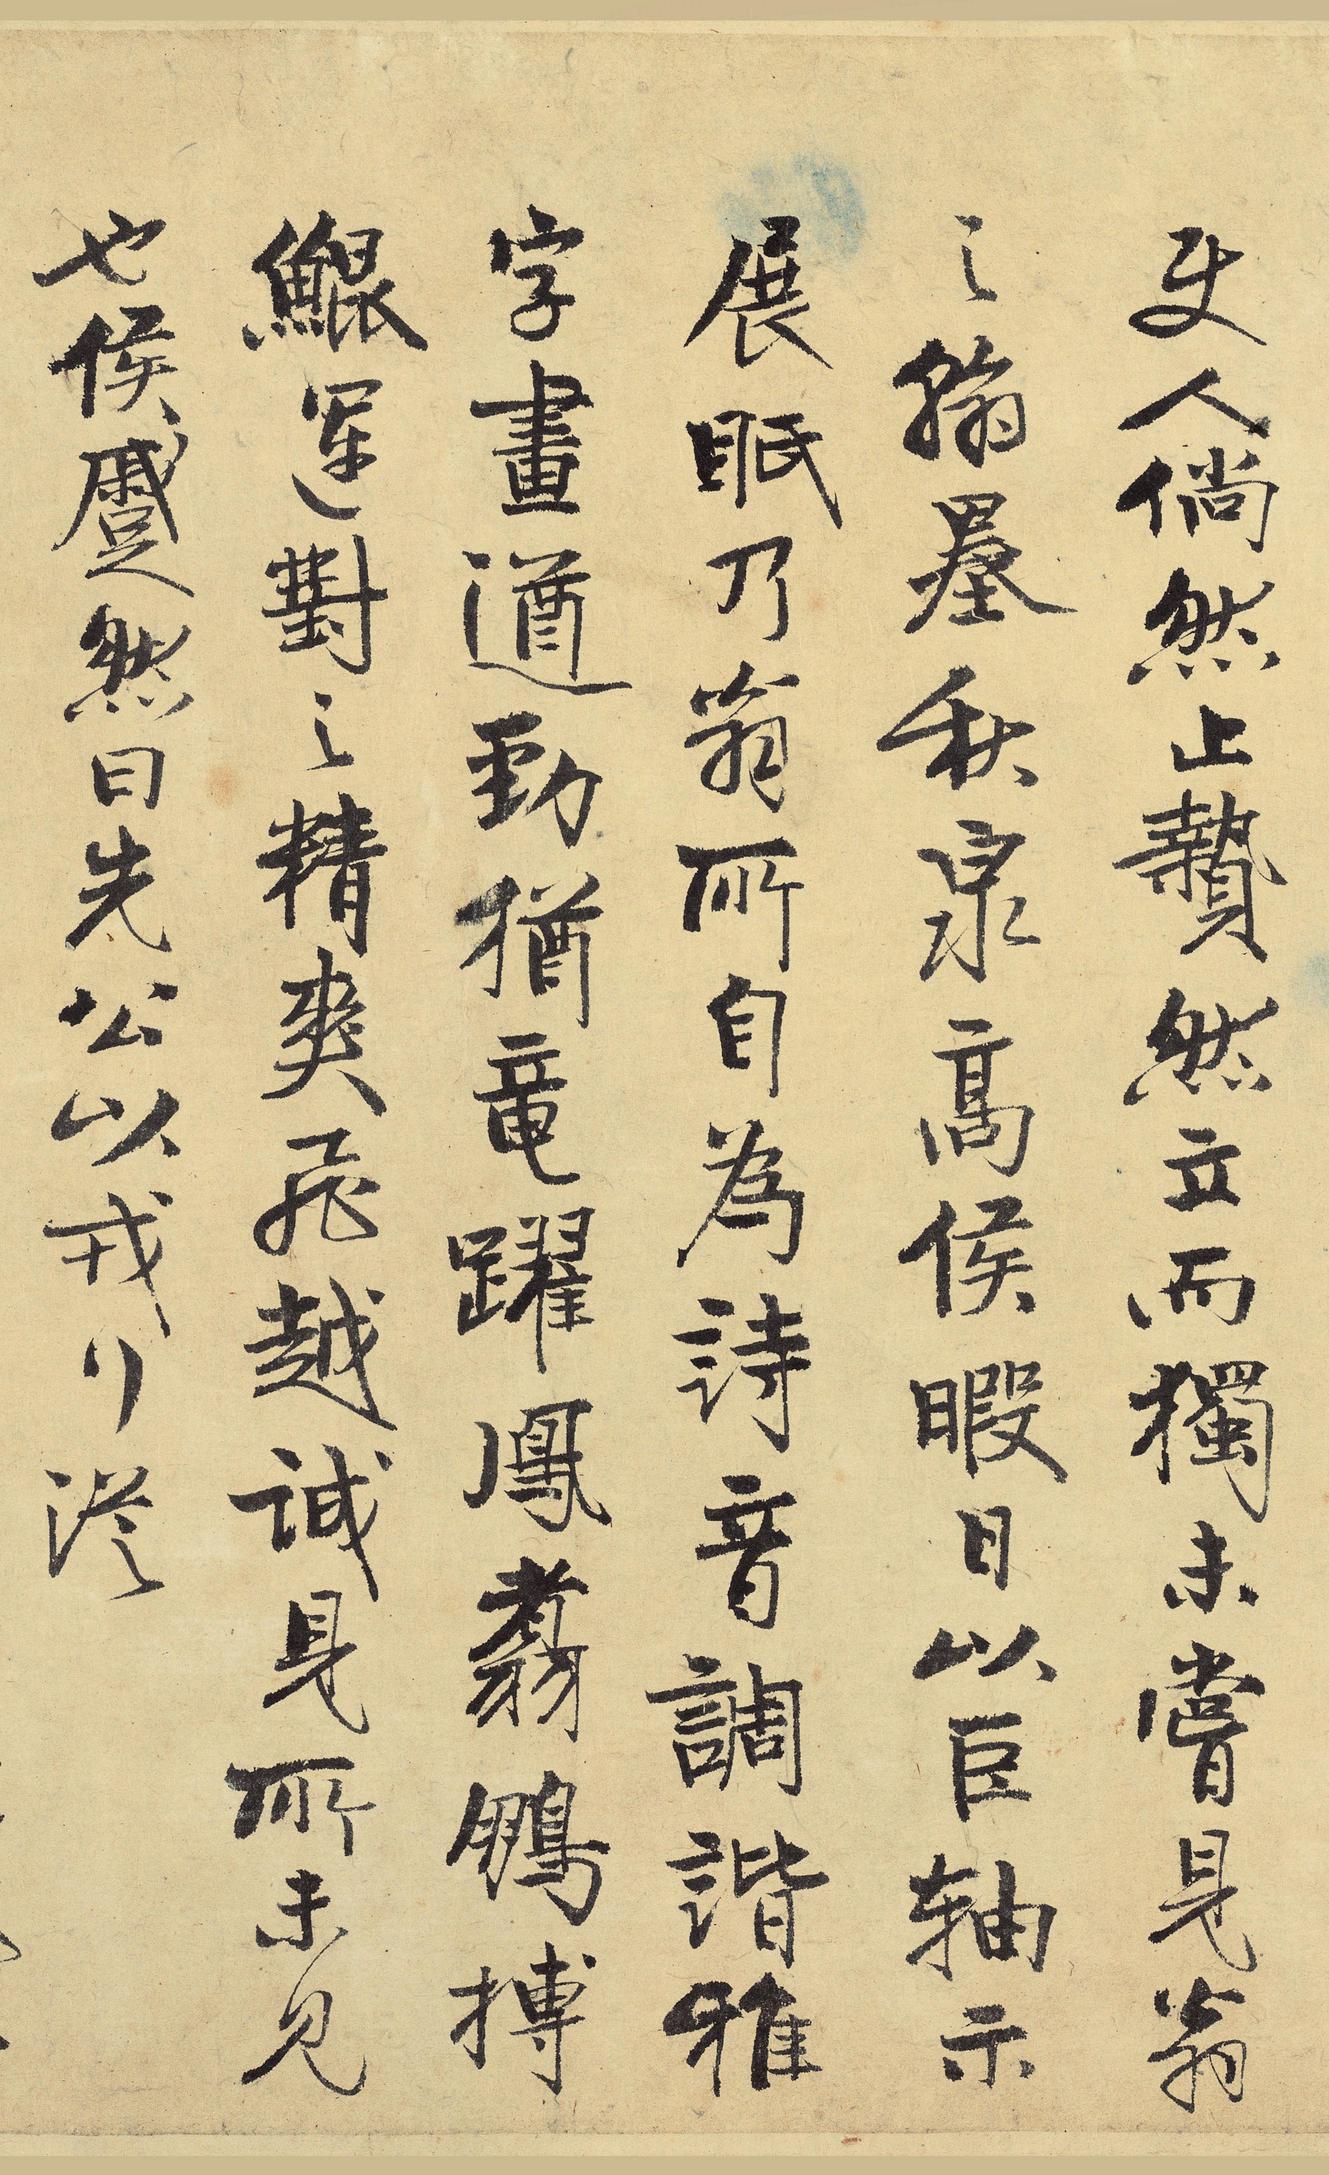 叟人倘然止贄然立而獨未嘗見翁
之翰墨秋泉高侯暇日以巨軸示
展眂乃翁所自為詩音調諧雅
字畫遒勁猶竜躍鳳翥鵬搏
鯤運對之精爽飛越誠見所未見
也侯蹙然曰先公以戎行從